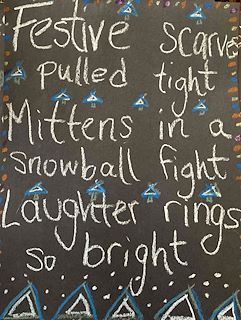 Festive scarves
pulled tight
Mittens in a
snowball fight
Laughter rings
so bright